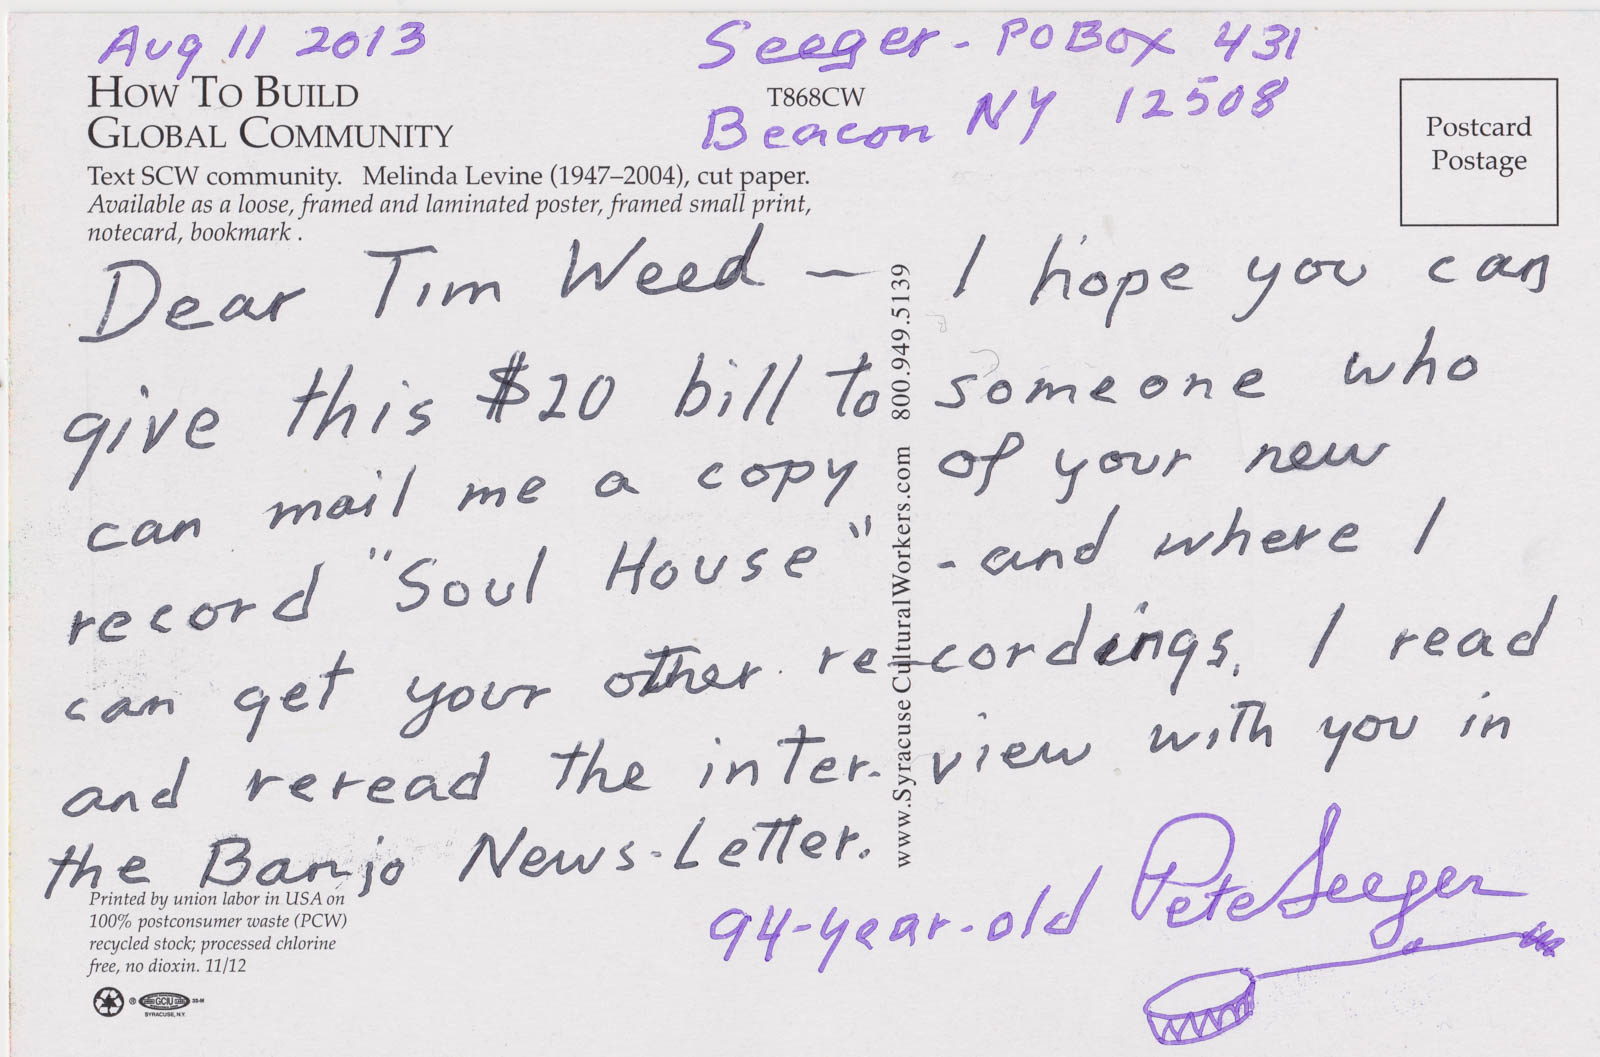 Aug 11 2013
Seeger - PO Box 431
Beacon NY 12508
HOW TO BUILD
GLOBAL COMMUNITY
T868CW
Postcard
Postage
Text SCW community. Melinda Levine (1947–2004), cut paper.
Available as a loose, framed and laminated poster, framed small print,
notecard, bookmark .
Dear Tim Weed — I hope you can
give this $20 bill to someone who
can mail me a copy of your new
record "Soul House" - and where I
can get your other re-cordings. I read
and reread the inter-view with you in
the Banjo News-Letter.
94-year-old Pete Seeger
www.SyracuseCulturalWorkers.com 800.949.5139
Printed by union labor in USA on
100% postconsumer waste (PCW)
recycled stock; processed chlorine
free, no dioxin. 11/12
® GCIU 33-M
SYRACUSE, N.Y.